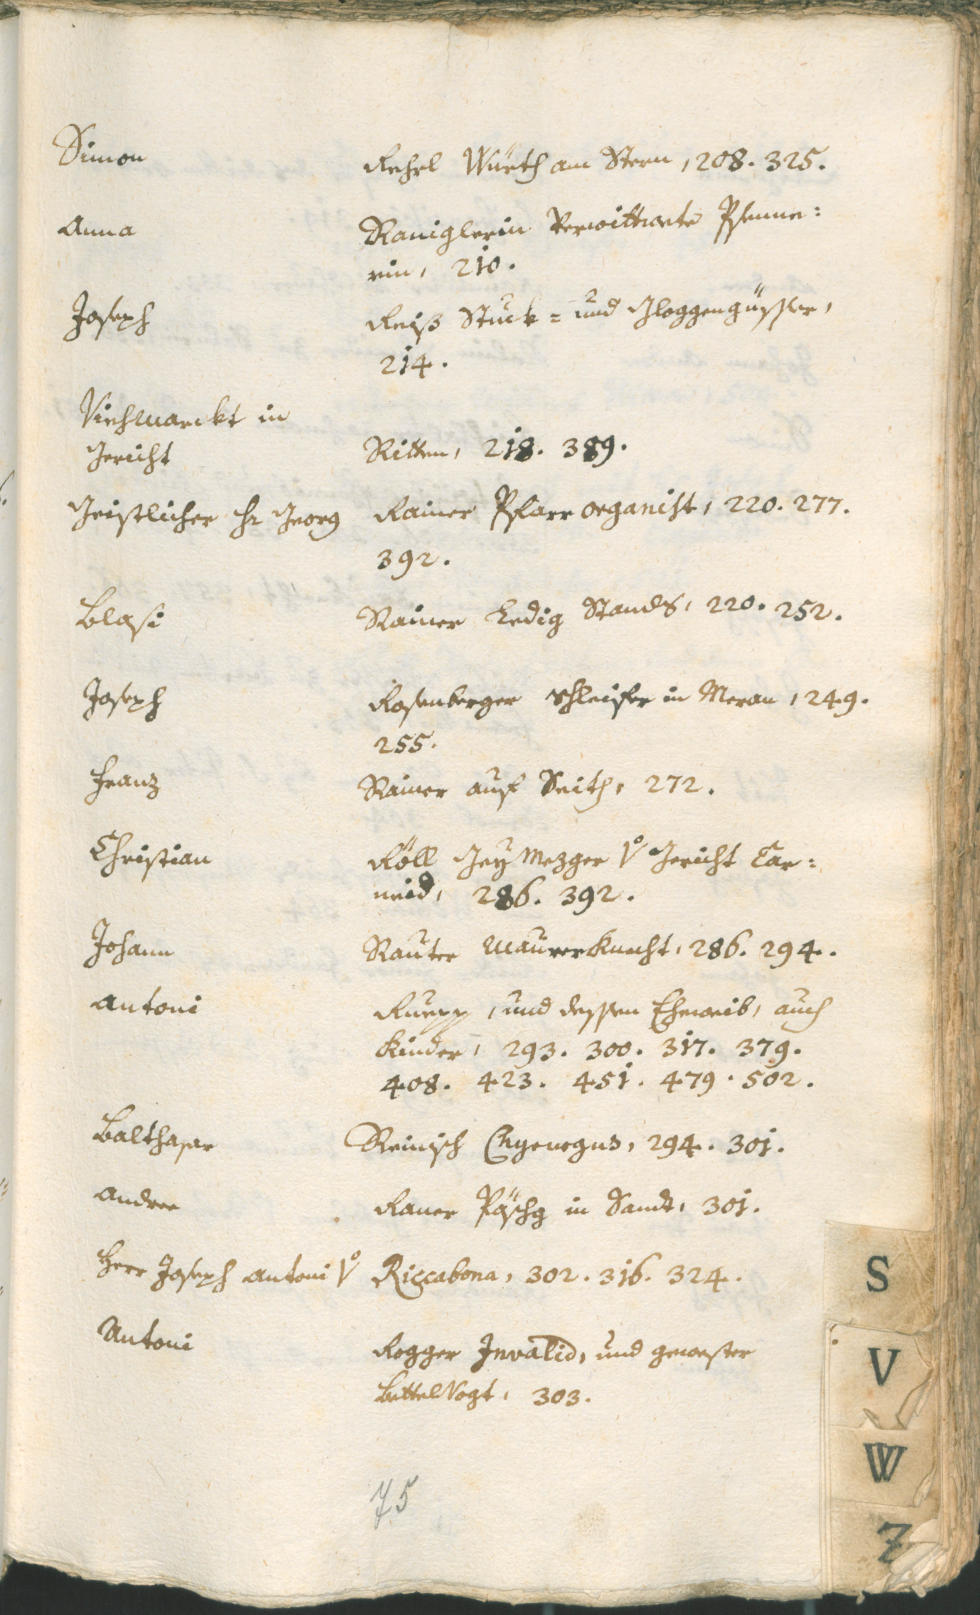 Simon Rehrl Würth am Stern, 208. 325.
Anna Raniglerin Verwittwete Pfenne:
rin, 210.
Joseph Reiß Stuck= und Gloggengüsser,
214.
Viehmarckt in
Gericht Ritten, 218. 389.
Geistlicher Hr Georg Rainer Pfarrorganist, 220. 277.
392.
Blasi Rainer Ledig Stands, 220. 252.
Joseph Rosenberger Schleifer in Meran, 249.
255.
Franz Rainer auf Seith, 272.
Christian Röll Gey Mezger Vo Gericht Car:
neid, 286. 392.
Johann Rauter Maurerknecht, 286. 294.
Antoni Ruepp, und dessen Eheweib, auch
Kinder, 293. 300. 317. 379.
408. 423. 451. 479. 502.
Balthasar Reinisch Chyrurgus, 294. 301.
Andree Raner Päschg in Sandt, 301.
Herr Joseph Antoni Vo Riccabona, 302. 316. 324.
Antoni Rogger Invalid, und gewester
Bettelvogt, 303.
75
S
V
W
Z